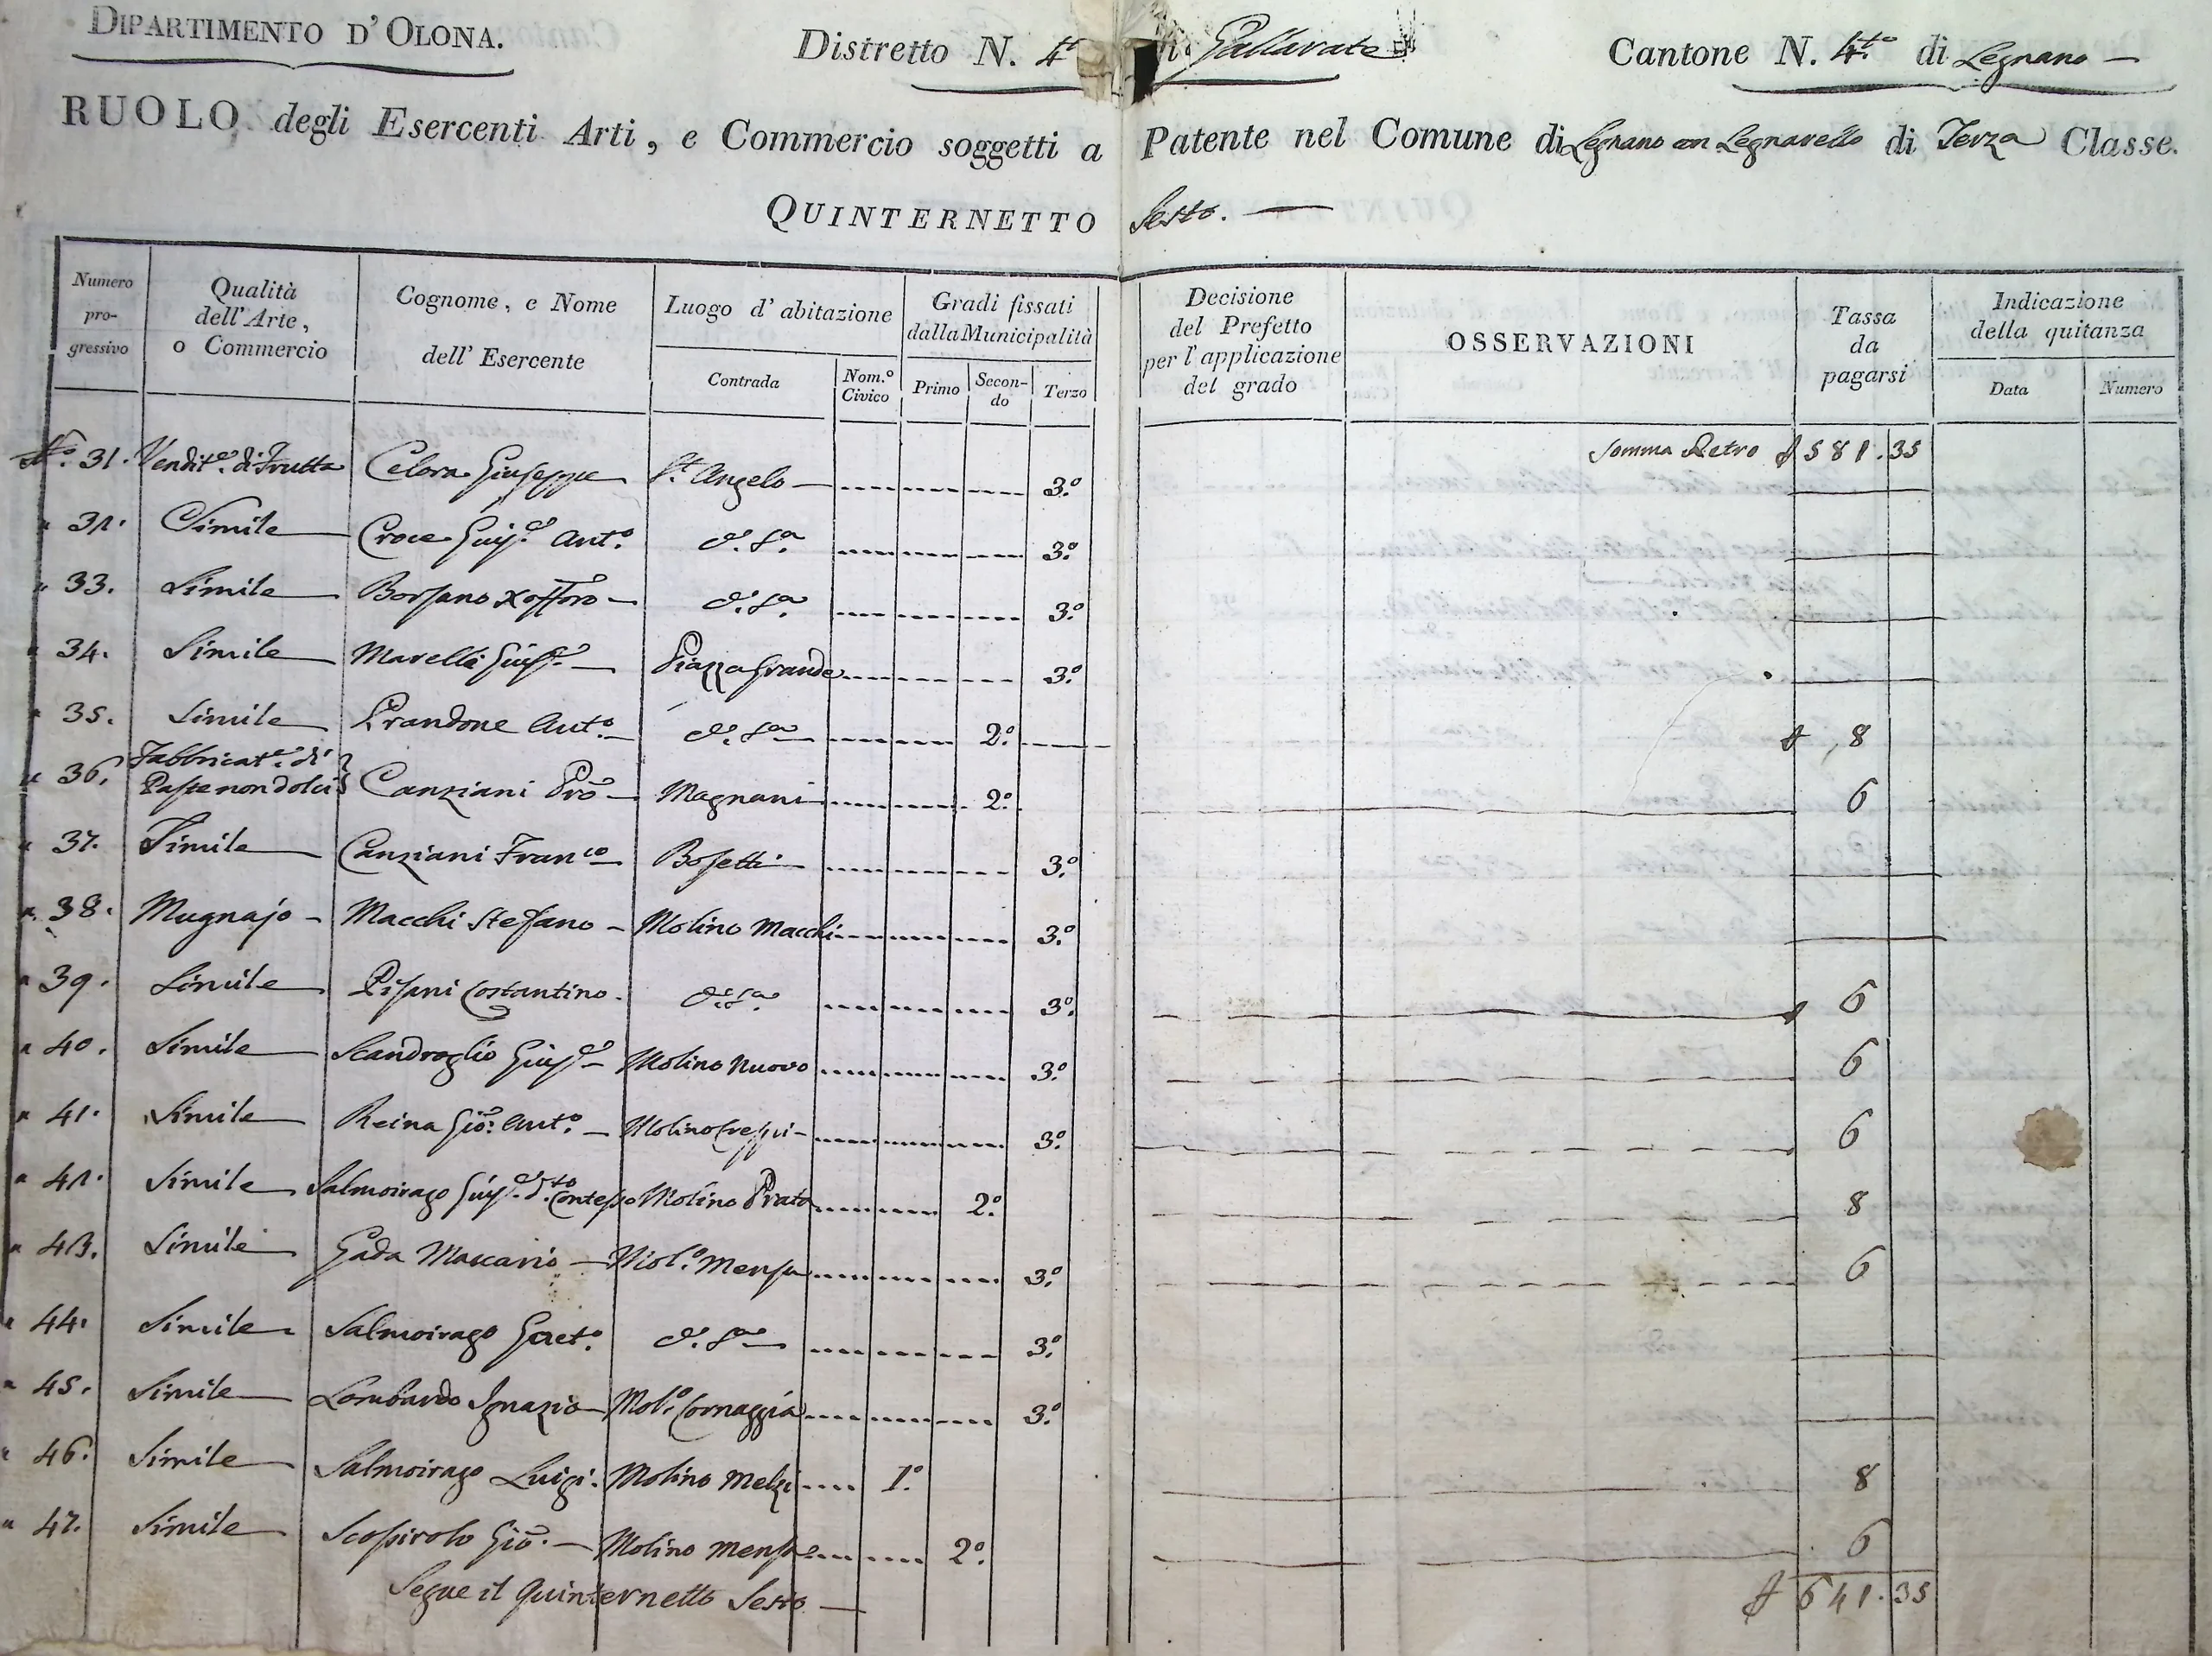 DIPARTIMENTO D'OLONA. Distretto N. 4.t di Gallarate Cantone N. 4.to di Legnano —
RUOLO degli Esercenti Arti, e Commercio soggetti a Patente nel Comune di Legnano con Legnarello di Terza Classe.
QUINTERNETTO Sesto. —
Numero progressivo
Qualità dell'Arte, o Commercio
Cognome, e Nome dell'Esercente
Luogo d'abitazione
Contrada
Nom.º Civico
Gradi fissati dalla Municipalità
Primo
Secondo
Terzo
Decisione del Prefetto per l'applicazione del grado
OSSERVAZIONI
Tassa da pagarsi
Indicazione della quitanza
Data
Numero
Somma Retro £ 581.35
Nº. 31. Vendit.e di Frutta Celora Giuseppe S.t Angelo — 3.º
" 32. Simile Croce Giuş.e Ant.º d.ª S.ª 3.º
" 33. Simile Borsano Xofforo — d.ª S.ª 3.º
" 34. Simile Marelli Gius.e — Piazza Grande 3.º
" 35. Simile Prandone Ant.º — d.ª S.ª 2.º £ 8
" 36. Fabbricat.e di Paste non dolci Canziani Pro — Magnani 2.º 6
" 37. Simile Canziani Fran.co Bosetti 3.º
" 38. Mugnajo — Macchi Stefano — Molino Macchi 3.º
" 39. Simile Pisani Costantino. d.ª S.ª 3.º £ 6
" 40. Simile Scandroglio Gius.e — Molino Nuovo 3.º 6
" 41. Simile Reina Gio: Ant.º — Molino Crespi — 3.º 6
" 42. Simile Salmoirago Gius.e d.to Contesso Molino Prato 2.º 8
" 43. Simile Gada Maccario — Mol.º Mensa 3.º 6
" 44. Simile Salmoirago Gaet.º d.ª S.ª 3.º
" 45. Simile Lombardo Ignazio — Mol.º Cornaggia 3.º
" 46. Simile Salmoirago Luigi. Molino Melzi 1.º 8
" 47. Simile Scossirolo Gio. — Molino Mensa 2.º 6
Segue il Quinternetto Sesto — £ 641.35